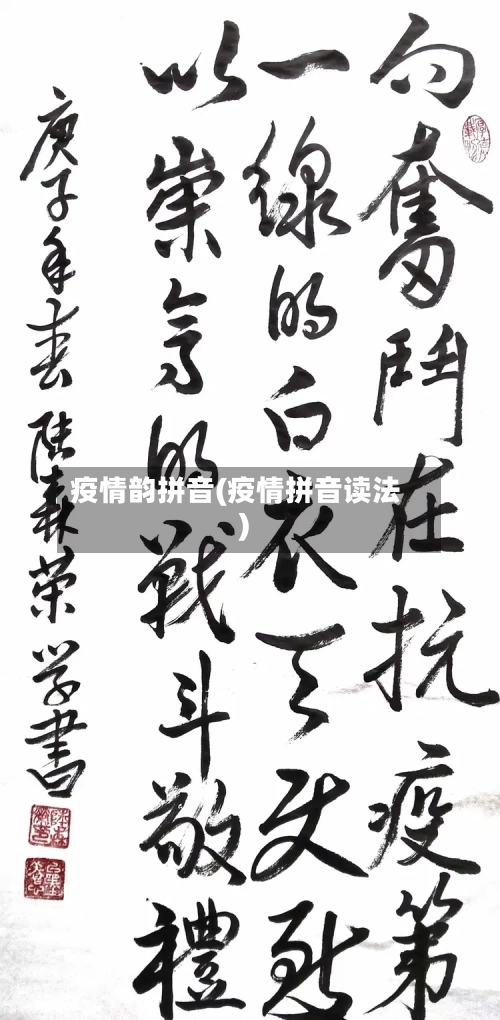 向奮鬥在抗疫第
一線的白衣天使致
以崇高的戰斗敬禮
庚子年春陆森荣学書
疫情韵拼音(疫情拼音读法
)
厚德載物